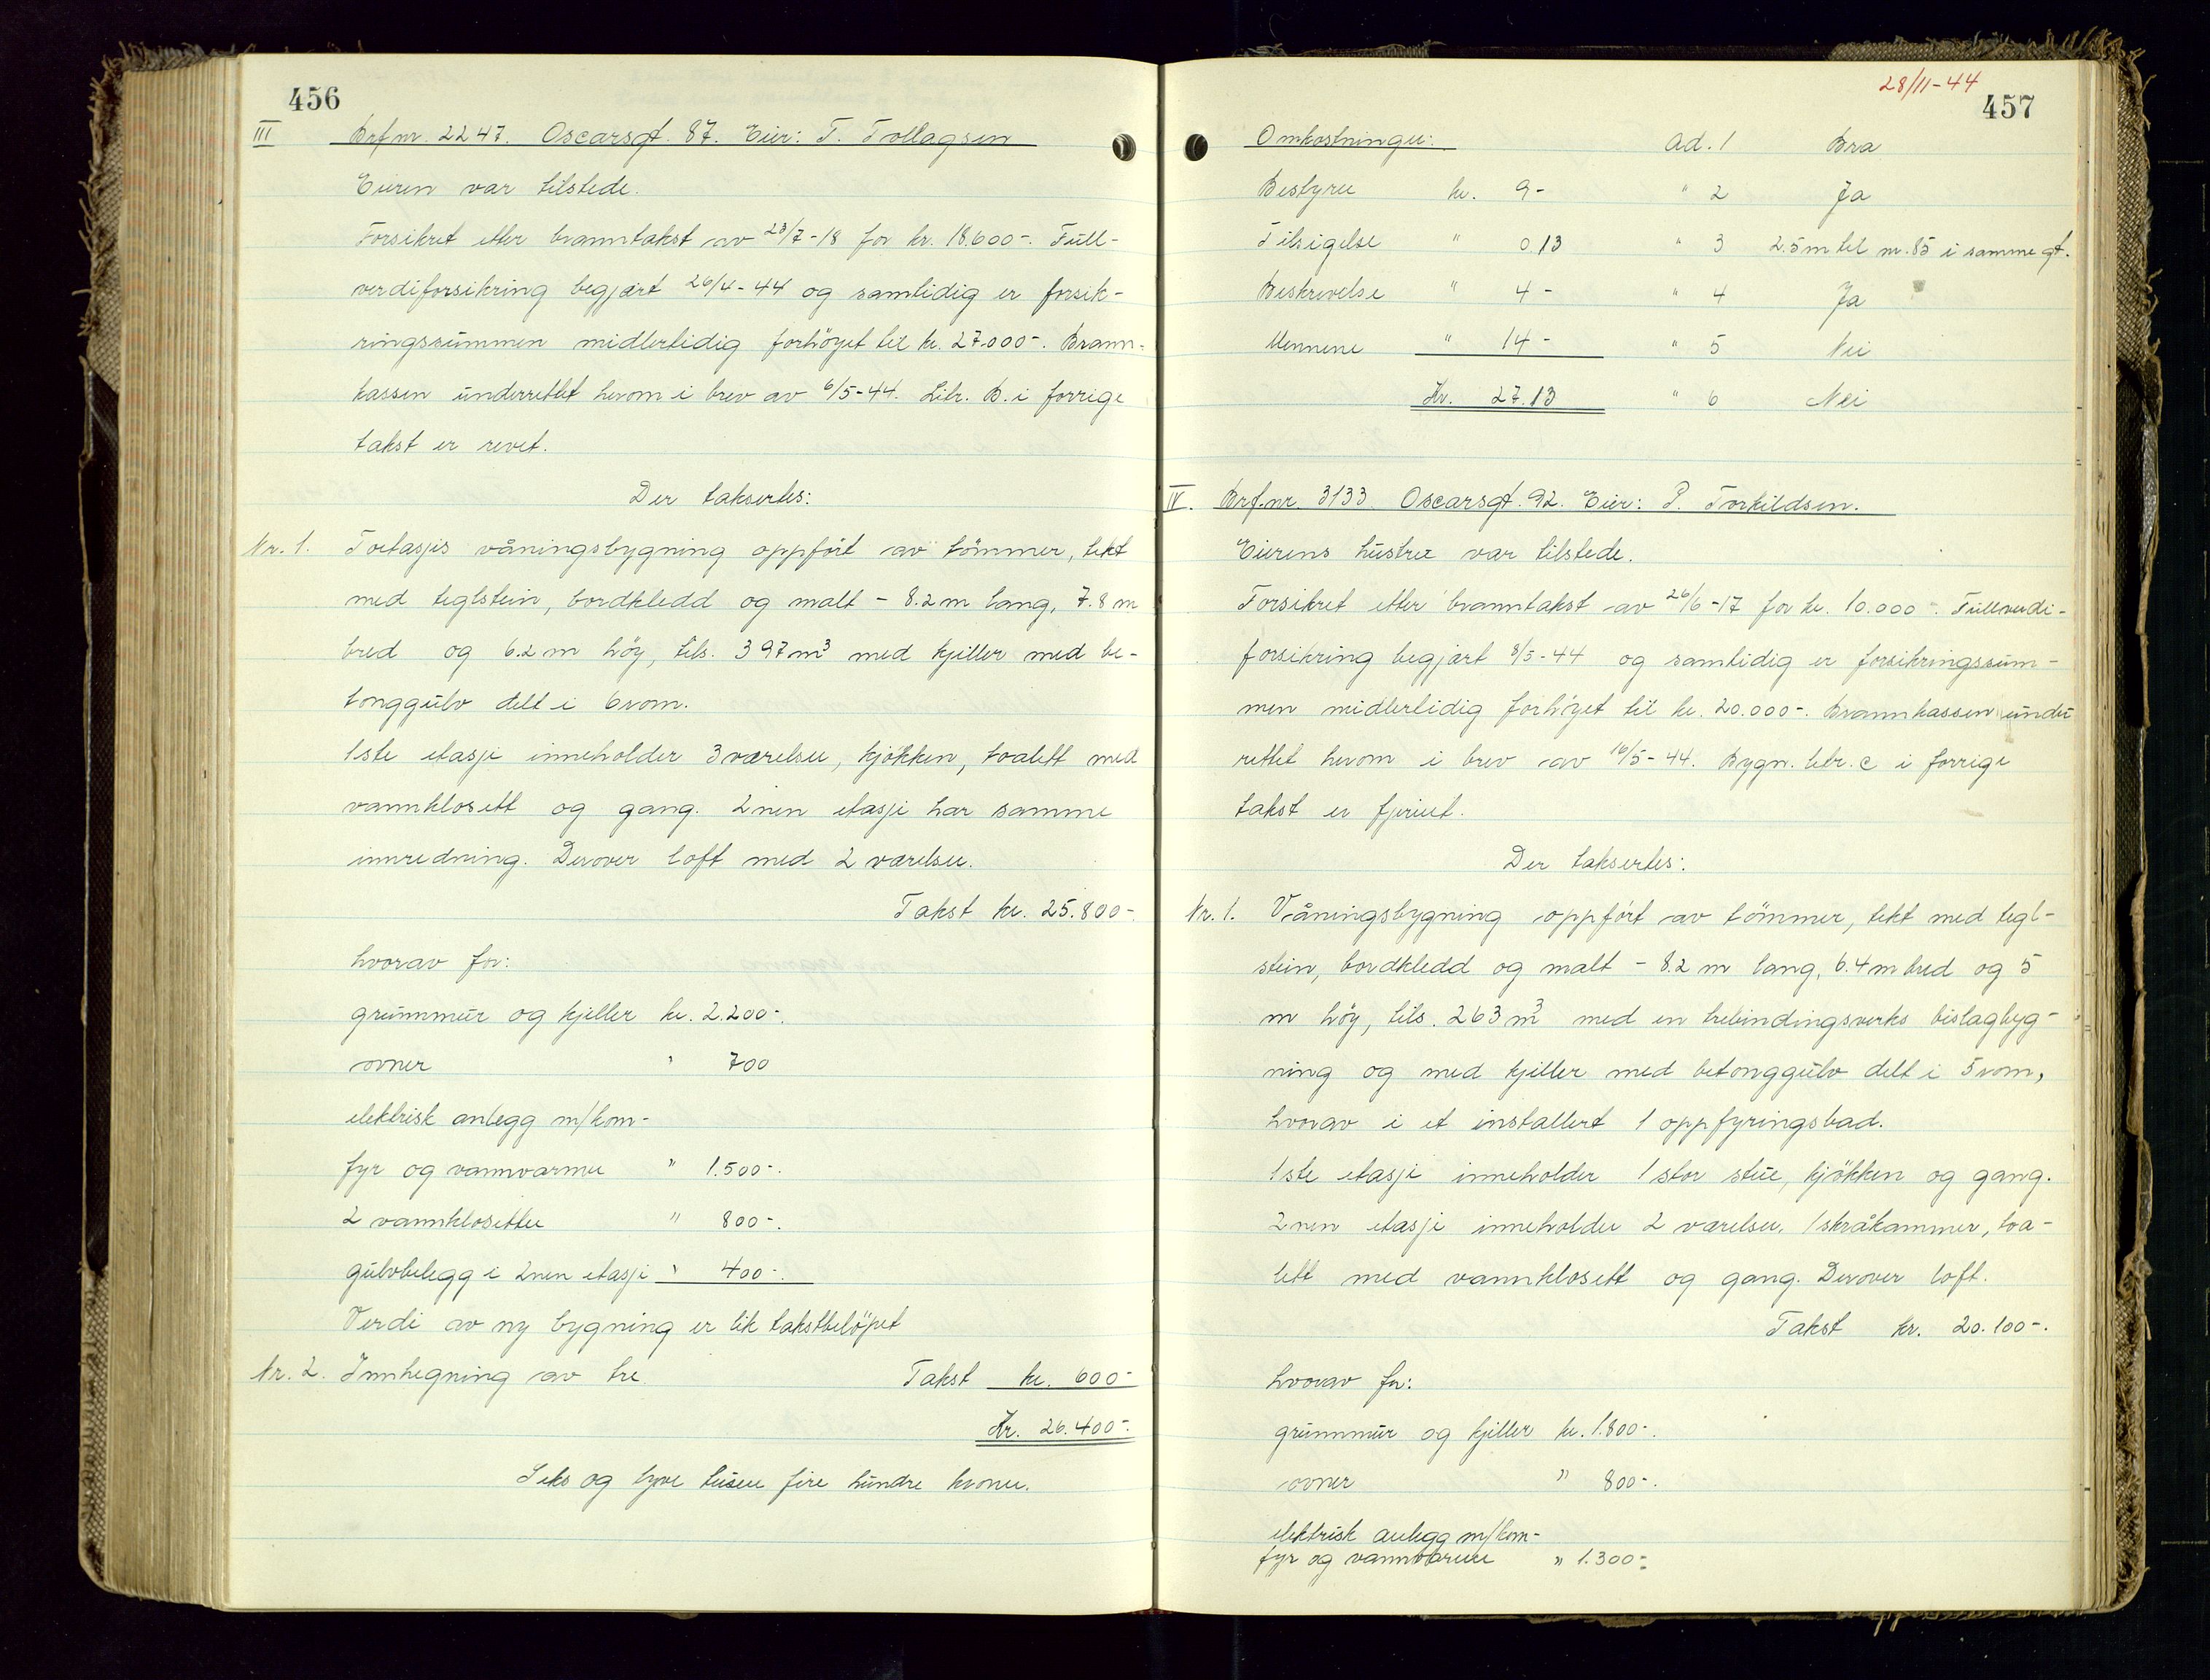 456
III Brf.nr. 2247. Oscarsgt. 87. Eier: T. Tollagsen
Eieren var tilstede.
Forsikret etter branntakst av 23/7-18 for kr. 18.600-. Full-
verdiforsikring begjært 26/4-44 og samtidig er forsik-
ringssummen midlertidig forhöyet til kr. 27.000-. Brann-
kassen underrettet herom i brev av 6/5-44. Litr. B. i forrige
takst er revet.
Der taksertes:
Nr. 1. Toetasjes våningsbygning oppfört av tömmer, tekt
med teglstein, bordkledd og malt - 8.2 m lang, 7.8 m
bred og 6.2 m höy, tils. 397 m³ med kjeller med be-
tonggulv delt i 6 rom.
1ste etasje inneholder 3 værelser, kjökken, toalett med
vannklosett og gang. 2nen etasje har samme
innredning. Derover loft med 2 værelser.
Takst kr. 25.800-.
hvorav for:
grunnmur og kjeller kr. 2.200-.
ovner " 700
elektrisk anlegg m/kom-
fyr og vannvarmer " 1.500-.
2 vannklosetter " 800-.
gulvbelegg i 2nen etasje " 400-.
Verdi av ny bygning er lik takstbelöpet
Nr. 2. Innhegning av tre. Takst kr. 600-
Kr. 26.400-.
Seks og tyve tusen fire hundre kroner.
28/11-44
457
Omkostninger: Ad. 1 Bra
Bestyrer kr. 9- " 2 Ja
Tilsigelse " 0.13 " 3 2.5 m til nr. 85 i samme gt.
Beskrivelse " 4- " 4 Ja
Mennene " 14- " 5 Nei
Kr. 27.13 " 6 Nei
IV. Brf.nr. 3133. Oscarsgt. 92. Eier: P. Torkildsen.
Eierens hustru var tilstede.
Forsikret etter branntakst av 26/6-17 for kr. 10.000-. Fullverdi-
forsikring begjært 8/5-44 og samtidig er forsikringssum-
men midlertidig forhöyet til kr. 20.000-. Brannkassen under
rettet herom i brev av 16/5-44. Bygn. litr. C i forrige
takst er fjernet.
Der taksertes:
Nr. 1. Våningsbygning oppfört av tömmer, tekt med tegl-
stein, bordkledd og malt - 8.2 m lang, 6.4 m bred og 5
m höy, tils. 263 m³ med en trebindingsverks bislagbyg-
ning og med kjeller med betonggulv delt i 5 rom,
hvorav i et installert 1 oppfyringsbad.
1ste etasje inneholder 1 stor stue, kjökken og gang.
2nen etasje inneholder 2 værelser, 1 skråkammer, toa-
lett med vannklosett og gang. Derover loft.
Takst kr. 20.100-.
hvorav for:
grunnmur og kjeller kr. 1.800-.
ovner " 800-.
elektrisk anlegg m/kom-
fyr og vannvarmer " 1.300-